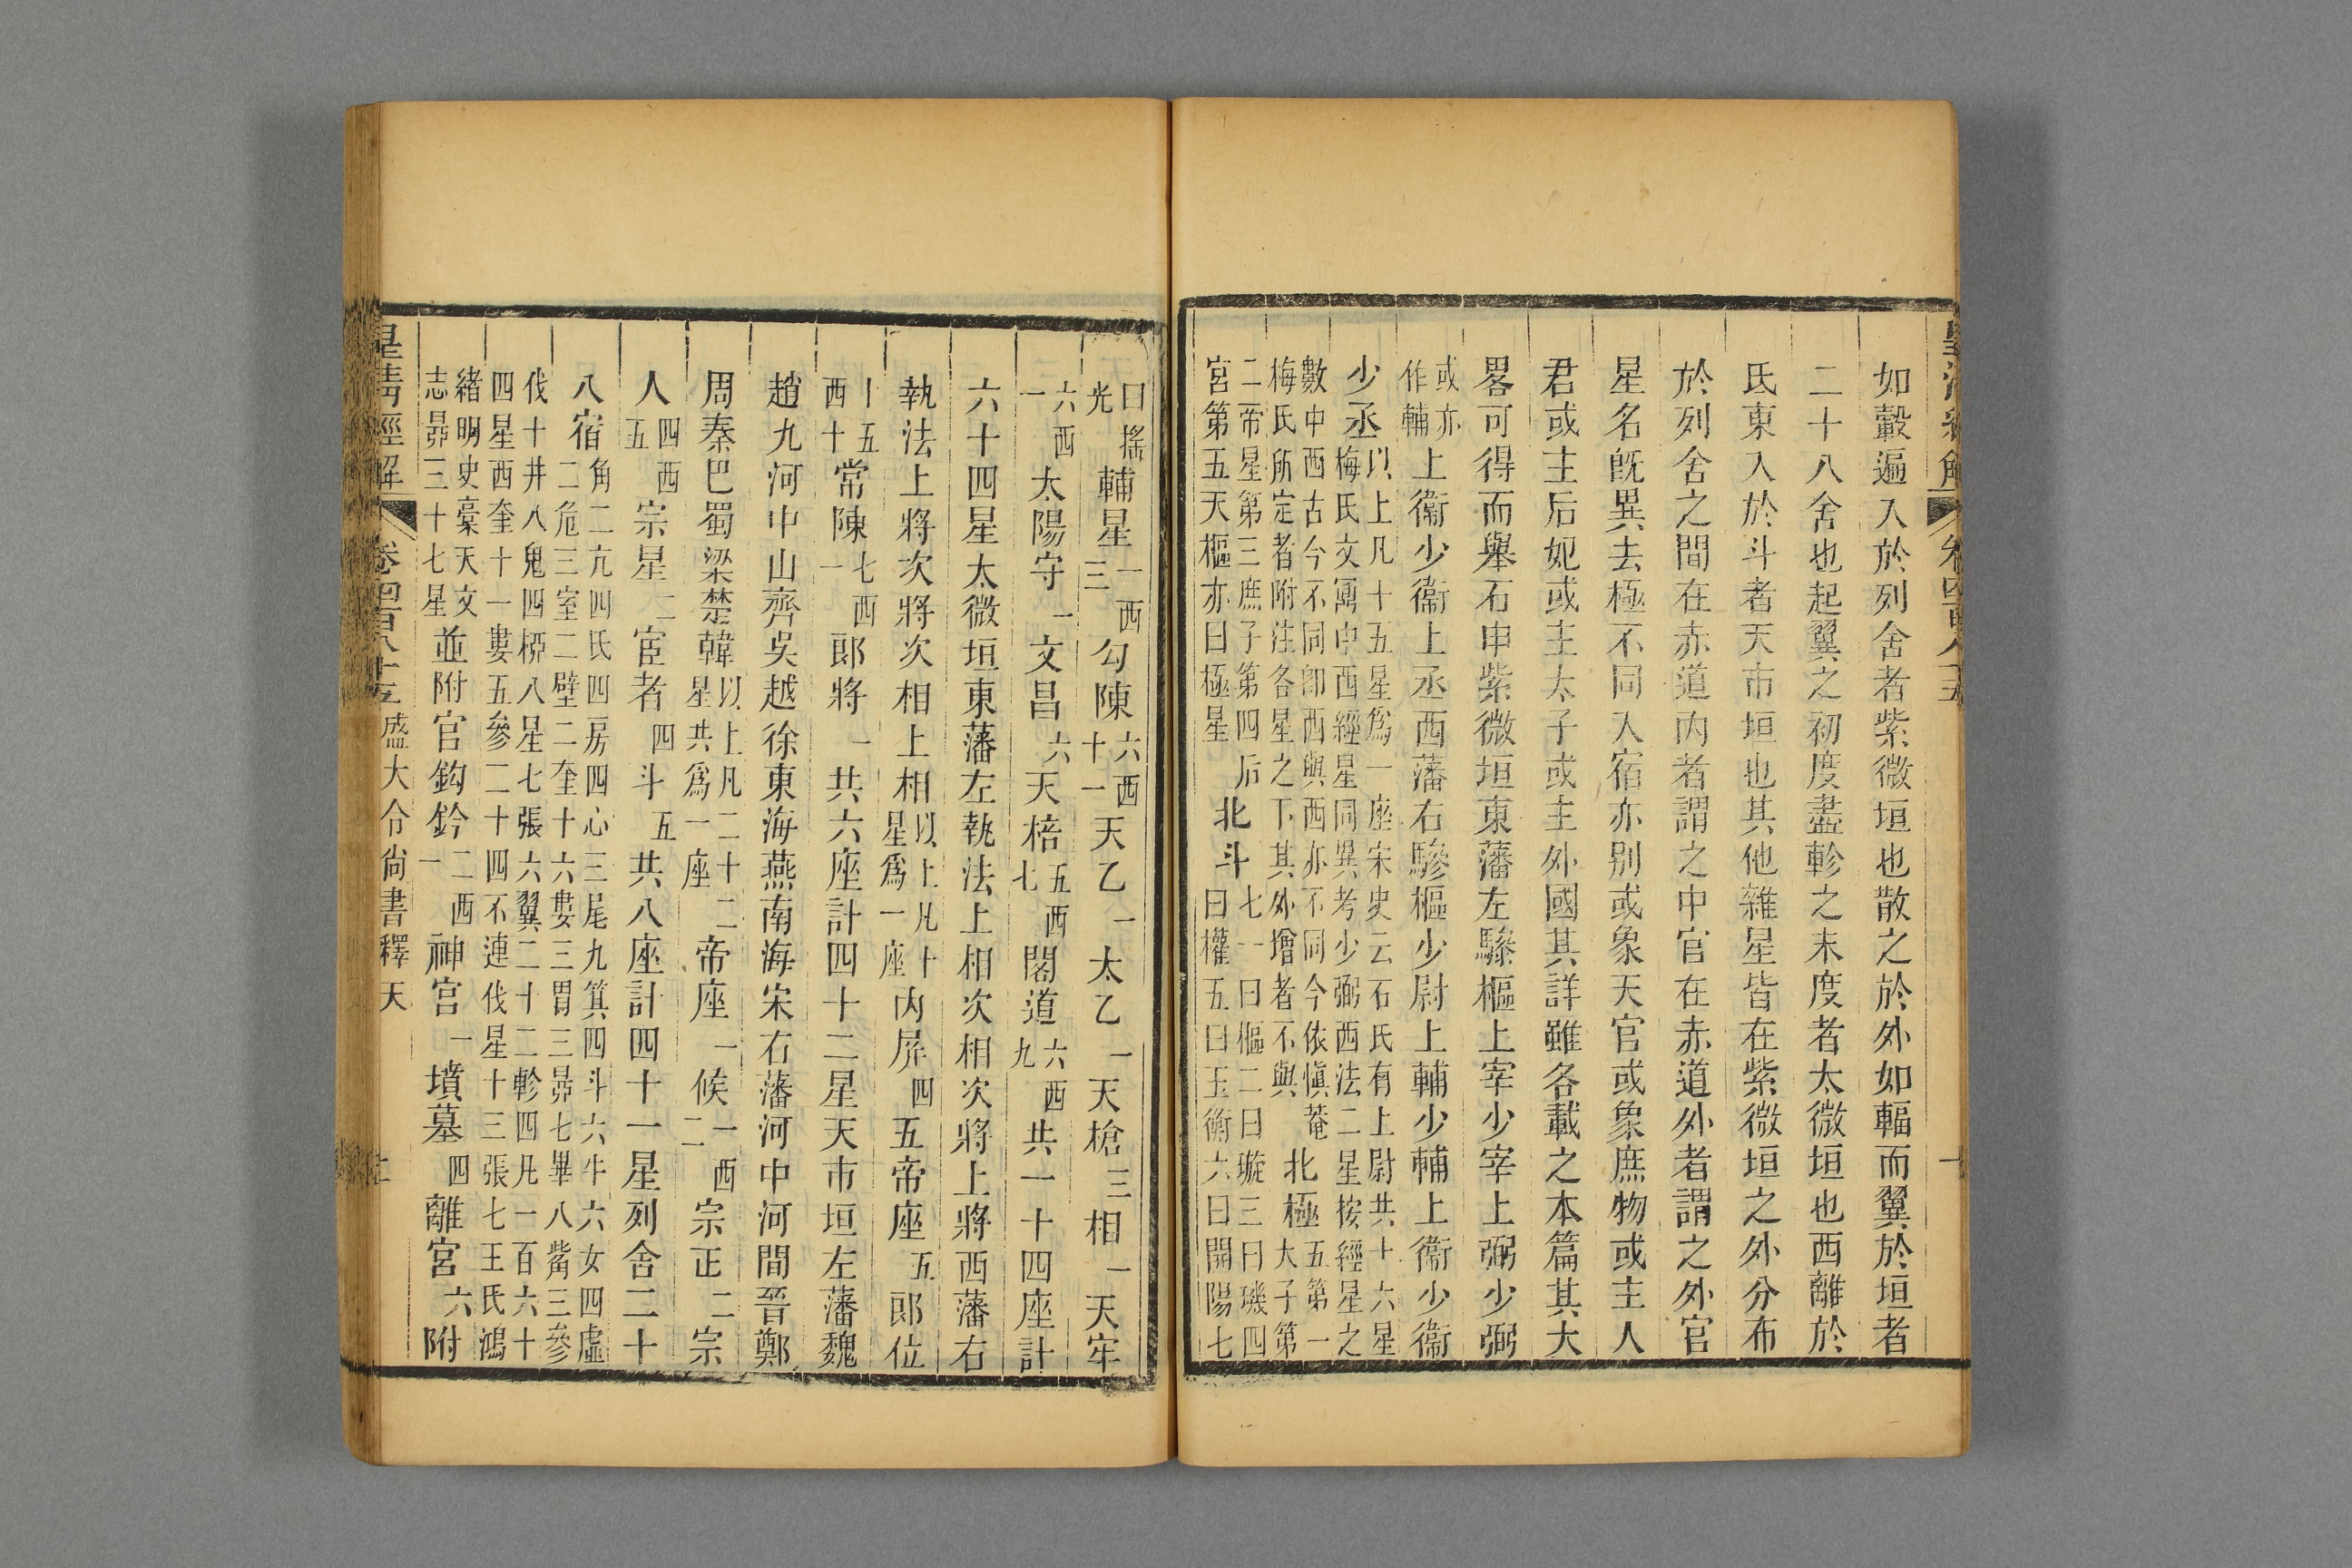 如轂遍入於列舍者紫微垣也散之於外如輻而翼於垣者
二十八舍也起翼之初度盡軫之末度者太微垣也西離於
氐東入於斗者天市垣也其他雜星皆在紫微垣之外分布
於列舍之間在赤道內者謂之中官在赤道外者謂之外官
星名旣異去極不同入宿亦別或象天官或象庶物或主人
君或主后妃或主太子或主外國其詳雖各載之本篇其大
畧可得而舉石申紫微垣東藩左驂樞上宰少宰上弼少弼
或亦作輔上衞少衞上丞西藩右驂樞少尉上輔少輔上衞少衞
少丞以上凡十五星爲一座宋史云石氏有上尉共十六星梅氏文鼐中西經星同異考少弼西法二星按經星之
數中西古今不同卽西與西亦不同今依愼菴梅氏所定者附注各星之下其外增者不與北極五第一太子第
二帝星第三庶子第四后宮第五天樞亦曰極星北斗七一曰樞二曰璇三曰璣四曰權五曰玉衡六曰開陽七
曰搖光輔星一西三勾陳六西十一天乙一太乙一天槍三相一天牢
六西一太陽守一文昌六天棓五西七閣道六西九共一十四座計
六十四星太微垣東藩左執法上相次相次將上將西藩右
執法上將次將次相上相以上凡十星爲一座內屏四五帝座五郎位
十五西十常陳七西一郎將一共六座計四十二星天市垣左藩魏
趙九河中山齊吳越徐東海燕南海宋右藩河中河間晉鄭
周秦巴蜀梁楚韓以上凡二十二星共爲一座帝座一候一西二宗正二宗
人四西五宗星二宦者四斗五共八座計四十一星列舍二十
八宿角二亢四氐四房四心三尾九箕四斗六牛六女四虛二危三室二壁二奎十六婁三胃三昴七畢八觜三參
伐十井八鬼四柳八星七張六翼二十二軫四凡一百六十四星西奎十一婁五參二十四不連伐星十三張七王氏鴻
緒明史稾天文志昴三十七星並附官鈎鈐二西一神宮一墳墓四離宮六附
皇清經解 卷四百八十五 盛大令尙書釋天